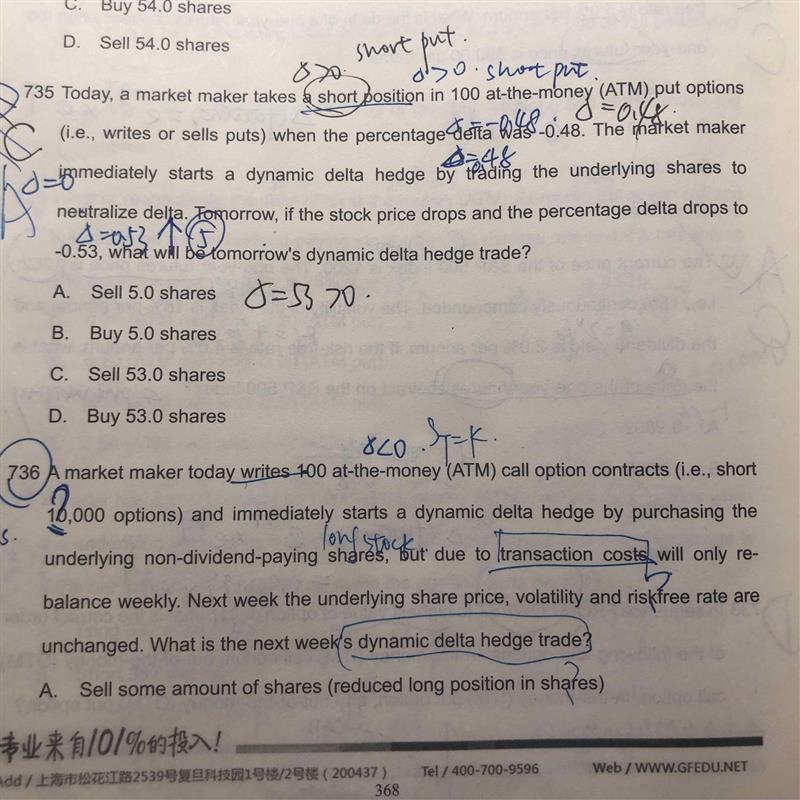 C. Buy 54.0 shares
D. Sell 54.0 shares
short put.
δ>0.
δ>0. short put.
735 Today, a market maker takes a short position in 100 at-the-money (ATM) put options
δ=-0.48.
δ=0.48.
(i.e., writes or sells puts) when the percentage delta was -0.48. The market maker
0.48
immediately starts a dynamic delta hedge by trading the underlying shares to
δ=0
neutralize delta. Tomorrow, if the stock price drops and the percentage delta drops to
δ=0.53 ↑ 5
-0.53, what will be tomorrow's dynamic delta hedge trade?
A. Sell 5.0 shares
δ=53 >0.
B. Buy 5.0 shares
C. Sell 53.0 shares
D. Buy 53.0 shares
δ<0. ST=K.
736 A market maker today writes 100 at-the-money (ATM) call option contracts (i.e., short
10,000 options) and immediately starts a dynamic delta hedge by purchasing the
long stock
underlying non-dividend-paying shares, but due to transaction costs will only re-
balance weekly. Next week the underlying share price, volatility and risk-free rate are
unchanged. What is the next week's dynamic delta hedge trade?
?
A. Sell some amount of shares (reduced long position in shares)
专业来自101%的投入!
Add / 上海市松花江路2539号复旦科技园1号楼/2号楼（200437） Tel / 400-700-9596 Web / WWW.GFEDU.NET
368